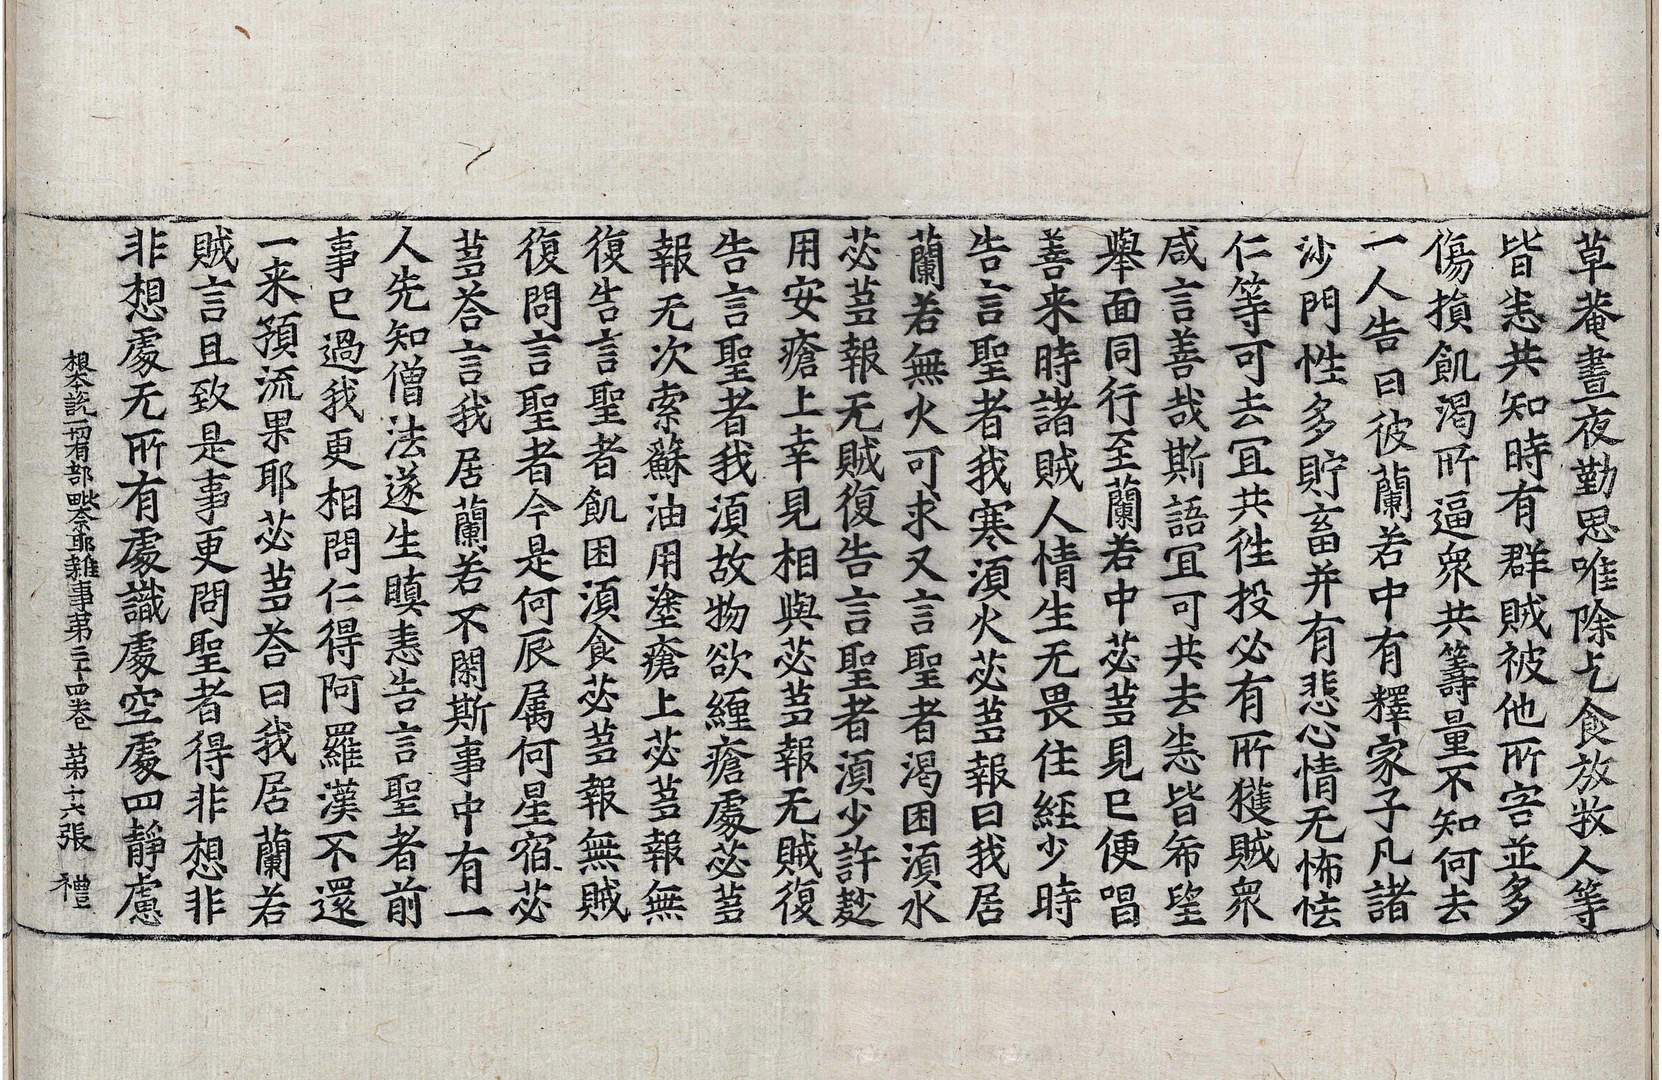 草菴晝夜勤思唯除乞食放牧人等
皆悉共知時有群賊被他所害並多
傷損飢渴所逼衆共籌量不知何去
一人告曰彼蘭若中有釋家子凡諸
沙門性多貯畜并有悲心情无怖怯
仁等可去冝共徃投必有所獲賊衆
咸言善哉斯語冝可共去悉皆希望
舉面同行至蘭若中苾蒭見已便唱
善来時諸賊人情生无畏住經少時
告言聖者我寒湏火苾蒭報曰我居
蘭若無火可求又言聖者渴困湏水
苾蒭報无賊復告言聖者湏少許麨
用安瘡上幸見相與苾蒭報无賊復
告言聖者我湏故物欲纏瘡處苾蒭
報无次索蘇油用塗瘡上苾蒭報無
復告言聖者飢困湏食苾蒭報無賊
復問言聖者今是何辰属何星宿苾
蒭荅言我居蘭若不閑斯事中有一
人先知僧法遂生瞋恚告言聖者前
事已過我更相問仁得阿羅漢不還
一来預流果耶苾蒭荅曰我居蘭若
賊言且致是事更問聖者得非想非
非想處无所有處識處空處四静慮
根本說一切有部毗奈耶雜事第三十四卷 第十六張 禮